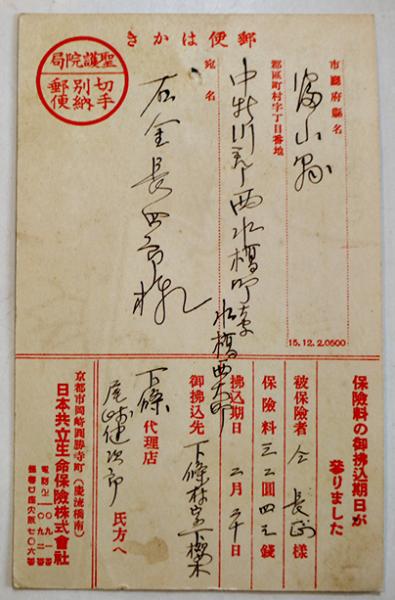 郵便はかき
聖護院局
切手
別納
郵便
市廳府縣名
富山縣
郡區町村字丁目番地
中新川郡西水橋町
水橋西大町
宛名
石金長四郎様
15.12.2.0500
保險料の御拂込期日が
參りました
被保險者 仝 長 様
保險料 三二圓四 錢
拂込期日 二月二十日
御拂込先 下條村字下條
下條代理店
尾崎健次郎氏方へ
京都市岡崎圓勝寺町(慶流橋南)
日本共立生命保險株式會社